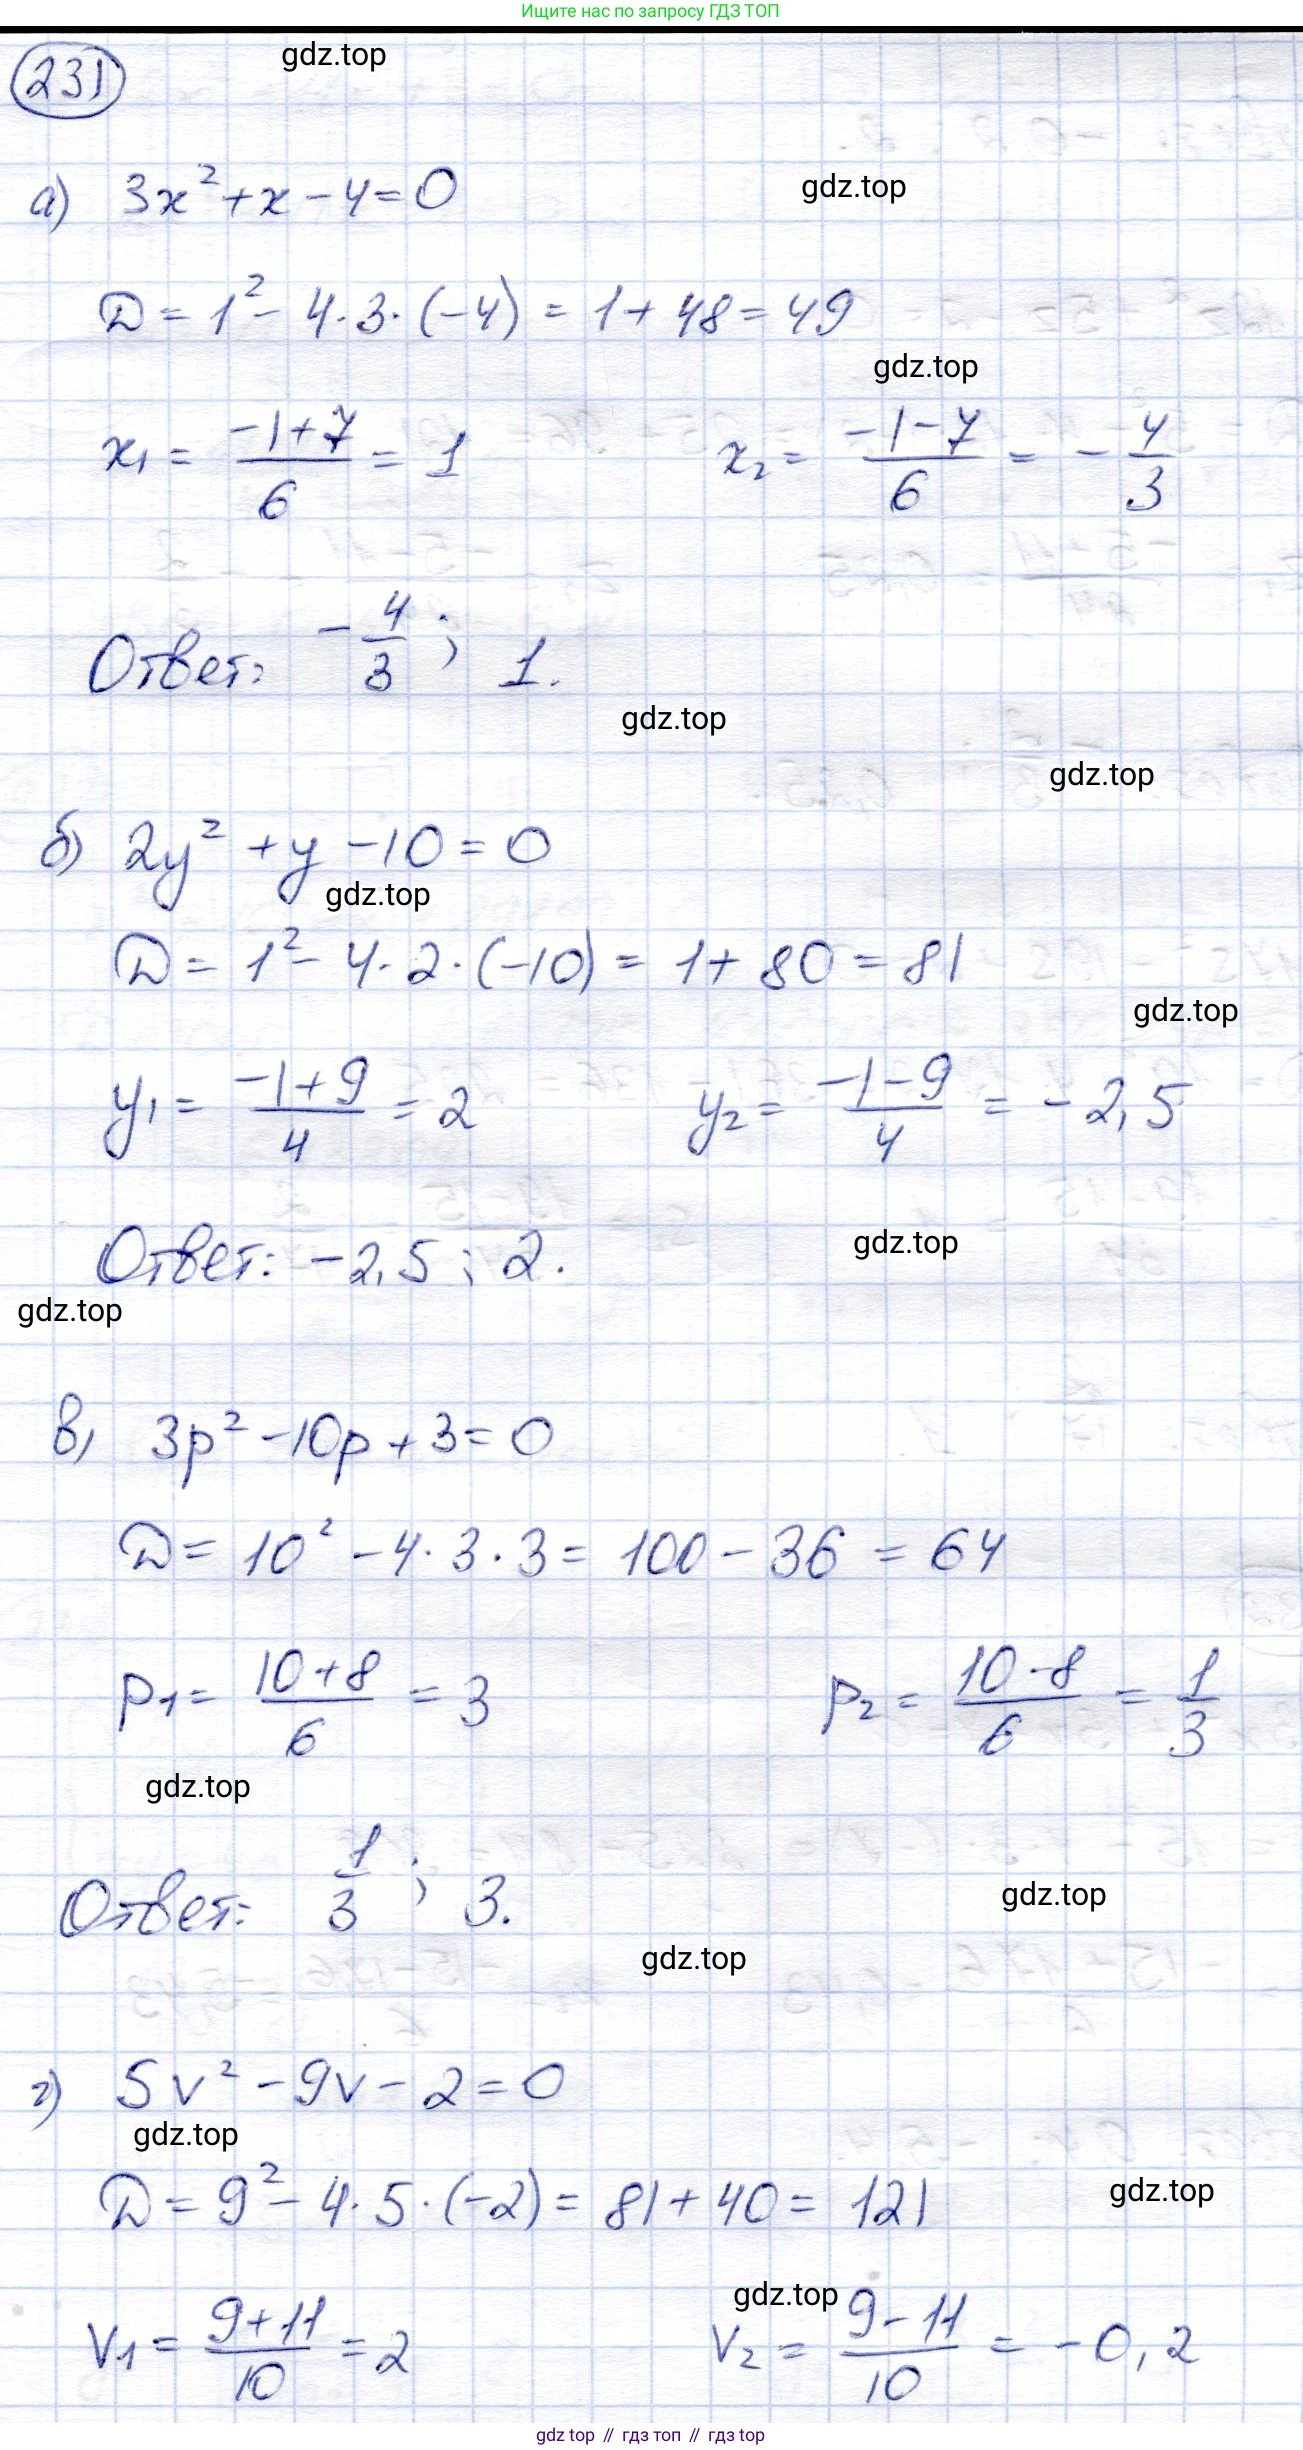 Ищите нас по запросу ГДЗ ТОП
231
gdz.top
а) 3x² + x - 4 = 0
gdz.top
D = 1² - 4·3·(-4) = 1 + 48 = 49
gdz.top
x₁ = (-1+7)/6 = 1 x₂ = (-1-7)/6 = -4/3
Ответ: -4/3; 1.
gdz.top
gdz.top
б) 2y² + y - 10 = 0
gdz.top
D = 1² - 4·2·(-10) = 1 + 80 = 81
gdz.top
y₁ = (-1+9)/4 = 2 y₂ = (-1-9)/4 = -2,5
Ответ: -2,5; 2.
gdz.top
gdz.top
в) 3p² - 10p + 3 = 0
D = 10² - 4·3·3 = 100 - 36 = 64
p₁ = (10+8)/6 = 3 p₂ = (10-8)/6 = 1/3
gdz.top
Ответ: 1/3; 3.
gdz.top
gdz.top
г) 5v² - 9v - 2 = 0
gdz.top
D = 9² - 4·5·(-2) = 81 + 40 = 121
gdz.top
gdz.top
v₁ = (9+11)/10 = 2 v₂ = (9-11)/10 = -0,2
gdz top // гдз топ // гдз top